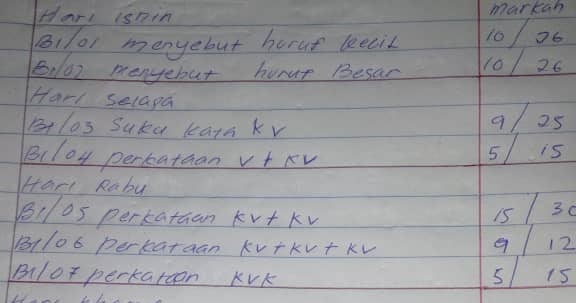 Hari isnin markah
B1/01 menyebut huruf kecil 10/26
B1/02 menyebut huruf Besar 10/26
Hari selasa
B1/03 Suku kata kv 9/25
B1/04 perkataan v + kv 5/15
Hari Rabu
B1/05 perkataan kv + kv 15/30
B1/06 perkataan kv + kv + kv 9/12
B1/07 perkataan kvk 5/15
Hari